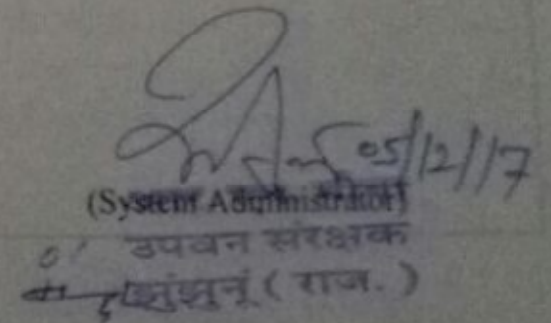 05/12/17
(System Administrator)
उपवन संरक्षक
झुंझुनूं ( राज. )